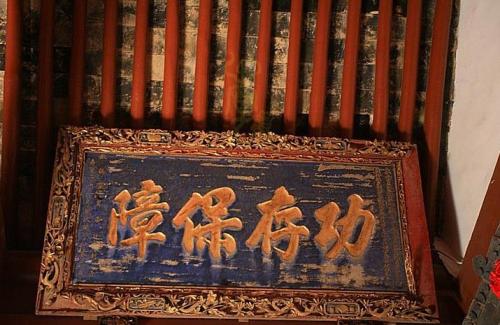 功存保障